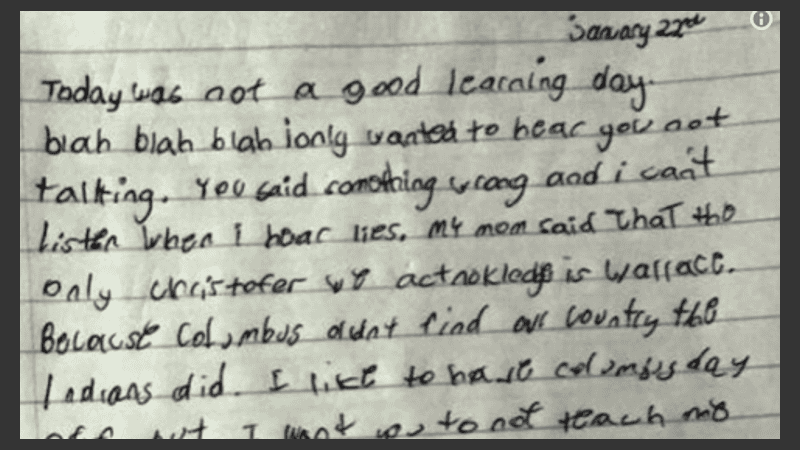 January 22nd
Today was not a good learning day.
blah blah blah i only wanted to hear you not
talking. You said somothing wrong and i can't
listen when i hear lies. My mom said That the
only christofer we acknokledge is Wallace.
Because Columbus didnt find our country the
Indians did. I like to have columbus day
off but I want you to not teach me